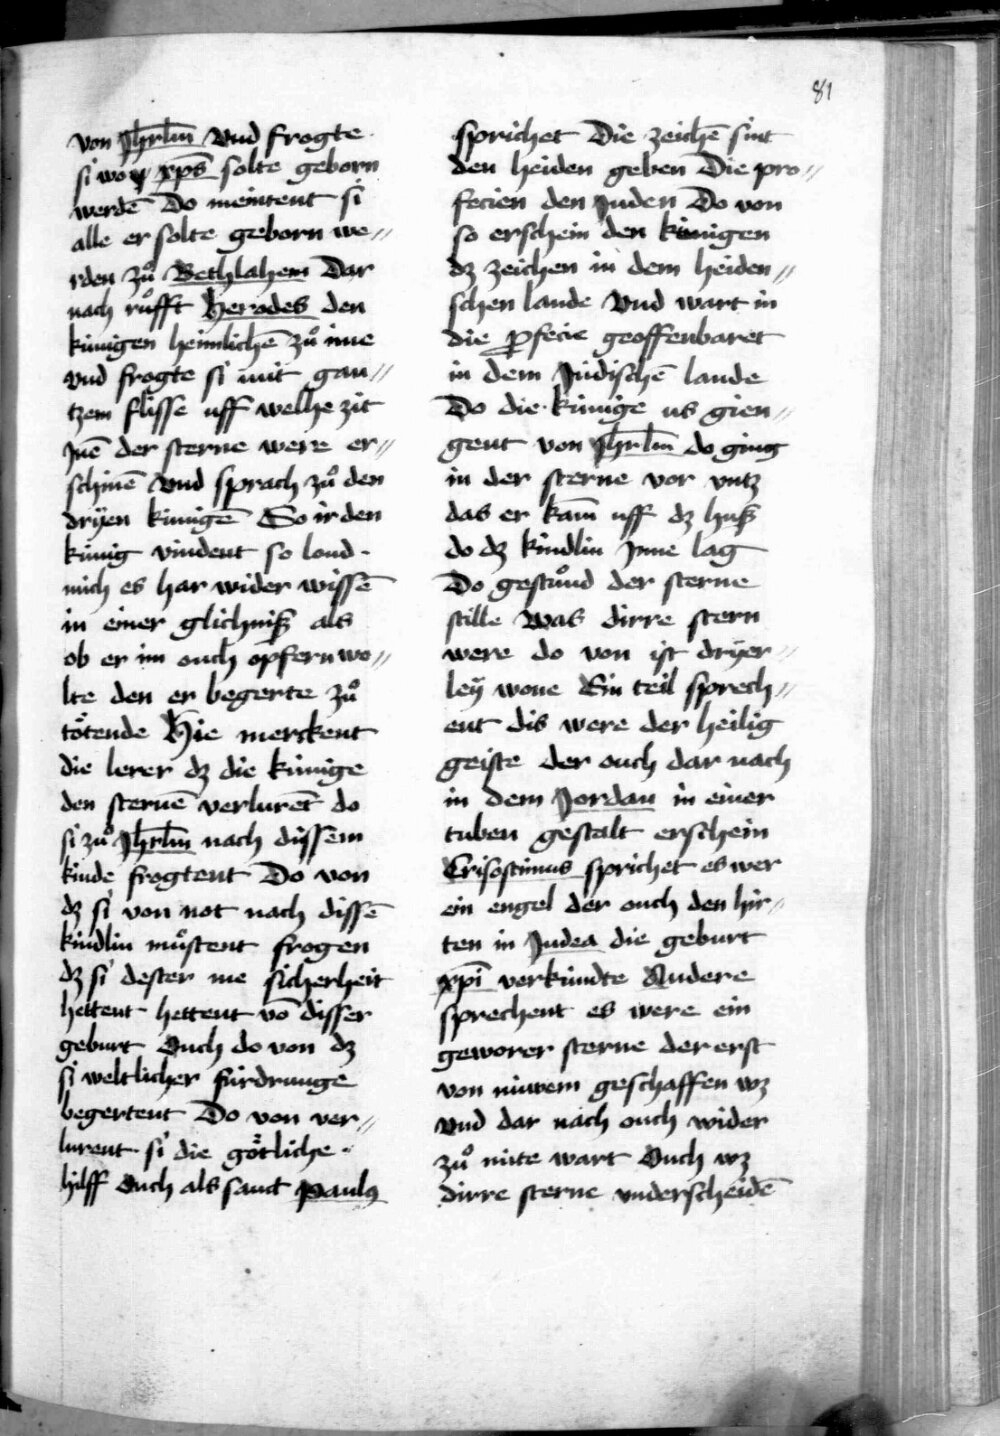 81
von Jhrlm̄ Vnd frogte
si wo xp̄s solte geborn
werdē Do meintent si
alle er solte geborn we〃
rden zuͦ Bethlahem Dar
nach ruͦfft Herodes den
kúnigen heimlichē zuͦ ime
vnd frogte si mit gan〃
tzem flisse uff welhe zit
Jnē der sterne were er〃
schinē Vnd sprach zuͦ den
dryen kúnigē So ir den
kúnig vindent so lond
mich es har wider wissē
in einer glichniß als
ob er im ouch opfern wo〃
lte den er begerte zuͦ
toͤtende Hie merckent
die lerer dz die kúnige
den sternē verlurēt do
si zuͦ Jhrlm̄ nach dissem
kinde frogtent Do von
dz si von not nach dissē
kindlin muͦstent frogen
dz si dester me sicherheit
hettent hettent vō disser
geburt Ouch do von dz
si weltlicher fúrdrunge
begertent Do von ver〃
lurent si die goͤtliche
hilff Ouch als sanct Paulꝰ
sprichet Die zeichē sint
den heiden geben Die pro〃
fecien den Juden Do von
so erschein den kúnigen
dz zeichen in dem heiden〃
schen lande Vnd wart in
die ꝓfecie geoffenbaret
in dem Júdischē lande
Do die kúnige us gien〃
gent von Jhrlm̄ do ging
in der sterne vor vntz
das er kam̄ uff dz huß
do dz kindlin Jnne lag
Do gestuͦnd der sterne
stille Was dirre stern
were do von ist dryer〃
ley wone Ein teil sprech〃
ent dis were der heilig
geiste der ouch dar nach
in dem Jordan in einer
tuben gestalt erschein
Crisostimus sprichet es wer
ein engel der ouch den hir〃
ten in Judea die geburt
xp̄i verkúndte Andere
sprechent es were ein
geworer sterne der erst
von núwem geschaffen wz
vnd dar nach ouch wider
zuͦ núte wart Ouch wz
dirre sterne vnderscheidē